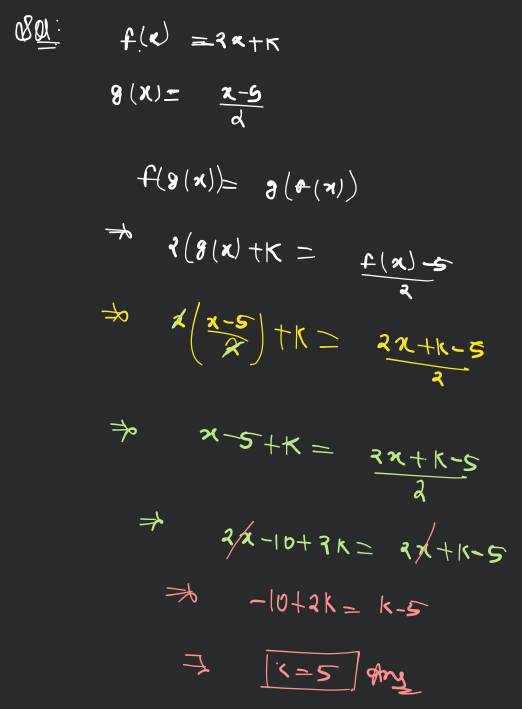 Sol:
f(x) = 2x+K
g(x) = x-5/2
f(g(x)) = g(f(x))
⇒ 2(g(x) + K = f(x)-5/2
⇒ 2(x-5/2) + K = 2x+K-5/2
⇒ x-5+K = 2x+K-5/2
⇒ 2x-10+2K = 2x+K-5
⇒ -10+2K = K-5
⇒ K=5 Ans